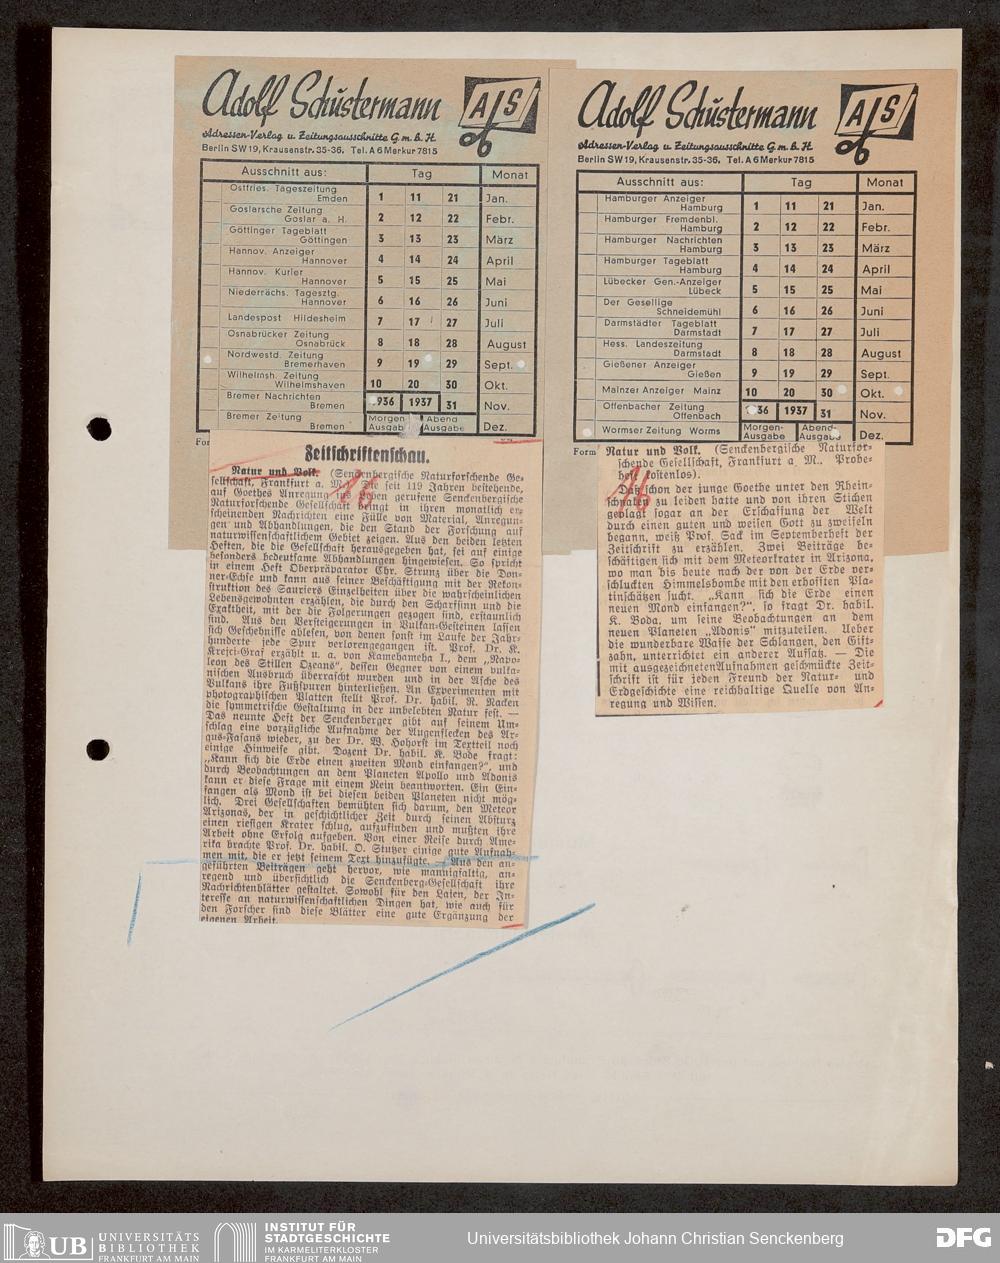 Adolf Schustermann
Adressen-Verlag u. Zeitungsausschnitte G.m.b.H.
Berlin SW 19, Krausenstr. 35-36. Tel. A 6 Merkur 7815
A/S
Ausschnitt aus: Tag Monat
Ostfries. Tageszeitung Emden 1 11 21 Jan.
Goslarsche Zeitung Goslar a. H. 2 12 22 Febr.
Göttinger Tageblatt Göttingen 3 13 23 März
Hannov. Anzeiger Hannover 4 14 24 April
Hannov. Kurier Hannover 5 15 25 Mai
Niederrächs. Tagesztg. Hannover 6 16 26 Juni
Landespost Hildesheim 7 17 27 Juli
Osnabrücker Zeitung Osnabrück 8 18 28 August
Nordwestd. Zeitung Bremerhaven 9 19 29 Sept.
Wilhelmsh. Zeitung Wilhelmshaven 10 20 30 Okt.
Bremer Nachrichten Bremen 936 1937 31 Nov.
Bremer Zeitung Bremen Morgen Ausgabe Abend Ausgabe Dez.
For
Zeitschriftenschau.
16
Natur und Volk. (Senckenbergische Naturforschende Ge-
sellschaft, Frankfurt a. M.) Die seit 119 Jahren bestehende,
auf Goethes Anregung ins Leben gerufene Senckenbergische
Naturforschende Gesellschaft bringt in ihren monatlich er-
scheinenden Nachrichten eine Fülle von Material, Anregun-
gen und Abhandlungen, die den Stand der Forschung auf
naturwissenschaftlichem Gebiet zeigen. Aus den beiden letzten
Heften, die die Gesellschaft herausgegeben hat, sei auf einige
besonders bedeutsame Abhandlungen hingewiesen. So spricht
in einem Heft Oberpräparator Chr. Strunz über die Don-
ner-Echse und kann aus seiner Beschäftigung mit der Rekon-
struktion des Sauriers Einzelheiten über die wahrscheinlichen
Lebensgewohnten erzählen, die durch den Scharfsinn und die
Exaktheit, mit der die Folgerungen gezogen sind, erstaunlich
sind. Aus den Versteigerungen in Vulkan-Gesteinen lassen
sich Geschehnisse ablesen, von denen sonst im Laufe der Jahr-
hunderte jede Spur verlorengegangen ist. Prof. Dr. K.
Krejci-Graf erzählt u. a. von Kamehameha I., dem „Napo-
leon des Stillen Ozeans“, dessen Gegner von einem vulka-
nischen Ausbruch überrascht wurden und in der Asche des
Vulkans ihre Fußspuren hinterließen. An Experimenten mit
photographischen Platten stellt Prof. Dr. habil. R. Nacken
die symmetrische Gestaltung in der unbelebten Natur fest. —
Das neunte Heft der Senckenberger gibt auf seinem Um-
schlag eine vorzügliche Aufnahme der Augenflecken des Ar-
gus-Fasans wieder, zu der Dr. W. Hohorst im Textteil noch
einige Hinweise gibt. Dozent Dr. habil. K. Bode fragt:
„Kann sich die Erde einen zweiten Mond einfangen?“, und
durch Beobachtungen an dem Planeten Apollo und Adonis
kann er diese Frage mit einem Nein beantworten. Ein Ein-
fangen als Mond ist bei diesen beiden Planeten nicht mög-
lich. Drei Gesellschaften bemühten sich darum, den Meteor
Arizonas, der in geschichtlicher Zeit durch seinen Absturz
einen riesigen Krater schlug, aufzufinden und mußten ihre
Arbeit ohne Erfolg aufgeben. Von einer Reise durch Ame-
rika brachte Prof. Dr. habil. O. Stutzer einige gute Aufnah-
men mit, die er jetzt seinem Text hinzufügte. — Aus den an-
geführten Beiträgen geht hervor, wie mannigfaltig, an-
regend und übersichtlich die Senckenberg-Gesellschaft ihre
Nachrichtenblätter gestaltet. Sowohl für den Laien, der In-
teresse an naturwissenschaftlichen Dingen hat, wie auch für
den Forscher sind diese Blätter eine gute Ergänzung der
eigenen Arbeit.
Adolf Schustermann
Adressen-Verlag u. Zeitungsausschnitte G.m.b.H.
Berlin SW 19, Krausenstr. 35-36. Tel. A 6 Merkur 7815
A/S
Ausschnitt aus: Tag Monat
Hamburger Anzeiger Hamburg 1 11 21 Jan.
Hamburger Fremdenbl. Hamburg 2 12 22 Febr.
Hamburger Nachrichten Hamburg 3 13 23 März
Hamburger Tageblatt Hamburg 4 14 24 April
Lübecker Gen.-Anzeiger Lübeck 5 15 25 Mai
Der Gesellige Schneidemühl 6 16 26 Juni
Darmstädter Tageblatt Darmstadt 7 17 27 Juli
Hess. Landeszeitung Darmstadt 8 18 28 August
Gießener Anzeiger Gießen 9 19 29 Sept.
Mainzer Anzeiger Mainz 10 20 30 Okt.
Offenbacher Zeitung Offenbach 36 1937 31 Nov.
Wormser Zeitung Worms Morgen-Ausgabe Abend-Ausgabe Dez.
Form
16
Natur und Volk. (Senckenbergische Naturfor-
schende Gesellschaft, Frankfurt a. M.. Probe-
heft kostenlos).
Daß schon der junge Goethe unter den Rhein-
schnaken zu leiden hatte und von ihren Stichen
geplagt sogar an der Erschaffung der Welt
durch einen guten und weisen Gott zu zweifeln
begann, weiß Prof. Sack im Septemberheft der
Zeitschrift zu erzählen. Zwei Beiträge be-
schäftigen sich mit dem Meteorkrater in Arizona,
wo man bis heute nach der von der Erde ver-
schluckten Himmelsbombe mit den erhofften Pla-
tinschätzen sucht. „Kann sich die Erde einen
neuen Mond einfangen?“, so fragt Dr. habil.
K. Boda, um seine Beobachtungen an dem
neuen Planeten „Adonis“ mitzuteilen. Ueber
die wunderbare Waffe der Schlangen, den Gift-
zahn, unterrichtet ein anderer Aufsatz. — Die
mit ausgezeichneten Aufnahmen geschmückte Zeit-
schrift ist für jeden Freund der Natur- und
Erdgeschichte eine reichhaltige Quelle von An-
regung und Wissen.
UB UNIVERSITÄTS BIBLIOTHEK FRANKFURT AM MAIN
INSTITUT FÜR STADTGESCHICHTE IM KARMELITERKLOSTER FRANKFURT AM MAIN
Universitätsbibliothek Johann Christian Senckenberg
DFG